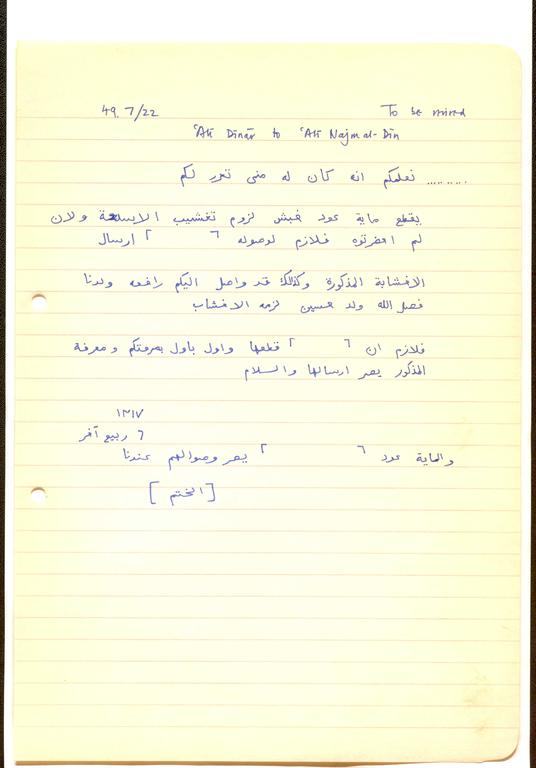 49. 7/22 To be mired
'Alī Dīnār to 'Alī Najm al-Dīn
.......... نعلمكم انه كان له منى تحرر لكم
يقطع ماية عود خبش لزوم تخشيب الاسلحة ولان
لم احضرتوه فلازم لوصوله ٦ ٢ ارسال
الاخشابة المذكورة وكذلك قد واصل اليكم رافعه ولدنا
فضل الله ولد حسين لزمه الاخشاب
فلازم ان ٦ ٢ قطعها واول باول بمعرفتكم ومعرفة
المذكور يصر ارسالها والسلام
١٣١٧
٦ ربيع آخر
والماية عود ٦ ٢ يصر وصوالهم عندنا
[الختم]